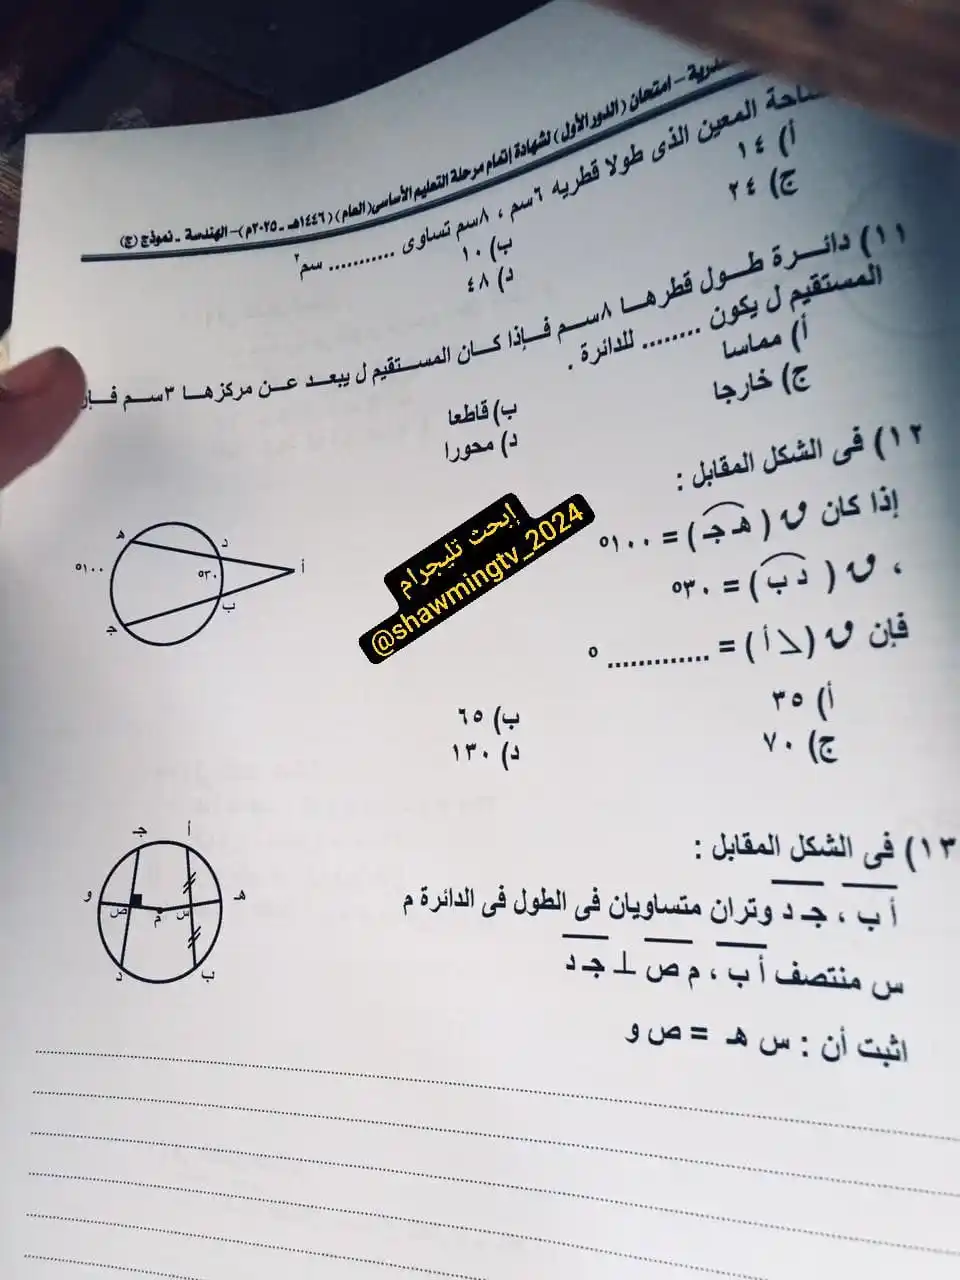 درية - امتحان (الدور الأول) لشهادة إتمام مرحلة التعليم الأساسي (العام) (١٤٤٦هـ - ٢٠٢٥م) - الهندسة - نموذج (ج)
المعين الذى طولا قطريه ٦سم ، ٨سم تساوى ........... سم٢
أ) ١٤
ب) ١٠
ج) ٢٤
د) ٤٨
١١) دائرة طول قطرها ٨سم فإذا كان المستقيم ل يبعد عن مركزها ٣سم فإن
المستقيم ل يكون ........ للدائرة .
أ) مماسا
ب) قاطعا
ج) خارجا
د) محورا
١٢) فى الشكل المقابل :
إذا كان ق ( هـ جـ ) = ١٠٠°
، ق ( د ب ) = ٣٠°
فإن ق (∠ أ ) = ............. °
أ) ٣٥
ب) ٦٥
ج) ٧٠
د) ١٣٠
هـ
د
أ
١٠٠°
٣٠°
ب
جـ
إبحث تليجرام
@shawmingtv_2024
١٣) فى الشكل المقابل :
أ ب ، جـ د وتران متساويان فى الطول فى الدائرة م
س منتصف أ ب ، م ص ⊥ جـ د
اثبت أن : س هـ = ص و
أ
جـ
هـ
و
س
م
ص
ب
د